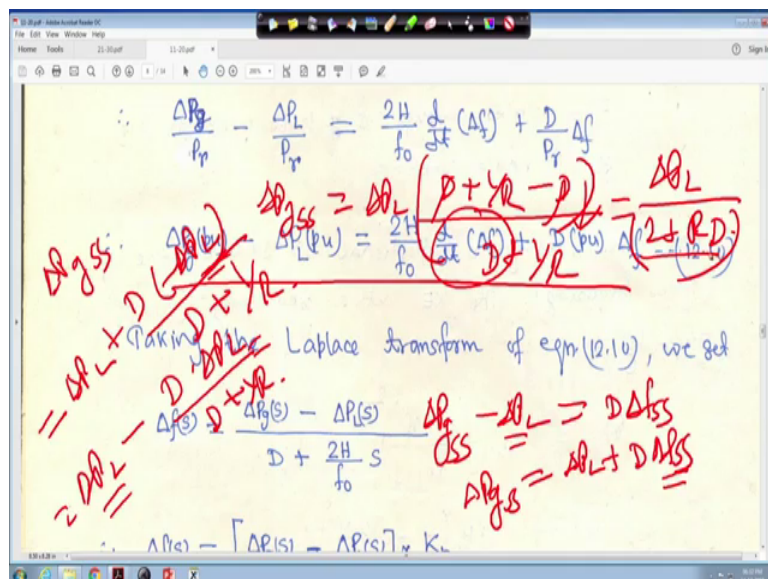 11-20.pdf - Adobe Acrobat Reader DC
File Edit View Window Help
Home Tools 21-30.pdf 11-20.pdf Sign In
∴ ΔPg/Pr - ΔPL/Pr = 2H/f0 d/dt (Δf) + D/Pr Δf
ΔPgss = ΔPL ( D + 1/R - D ) / ( D + 1/R ) = ΔPL / (1 + RD)
∴ ΔPg(pu) - ΔPL(pu) = 2H/f0 d/dt (Δf) + D(pu) Δf --- (12.10)
ΔPgss
= ΔPL + D (-ΔPL) / D + 1/R.
= ΔPL - D ΔPL / D + 1/R.
Taking the Laplace transform of eqn.(12.10), we get
Δf(s) = ΔPg(s) - ΔPL(s) / D + 2H/f0 s
ΔPgss - ΔPL = D Δfss
ΔPgss = ΔPL + D Δfss
∴ Δf(s) = [ΔPg(s) - ΔPL(s)] × Kp